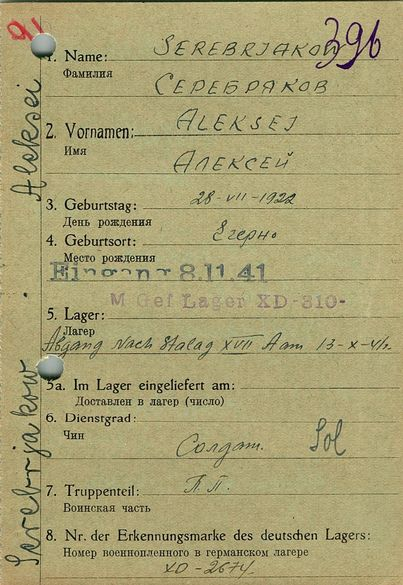 91
396
1. Name: SEREBRJAKOW
Фамилия
СЕРЕБРЯКОВ
2. Vornamen: ALEKSEJ
Имя
АЛЕКСЕЙ
3. Geburtstag: 28-VII-1922
День рождения
4. Geburtsort: Егерно
Место рождения
Eingang 8.11.41
M Gef Lager XD-310-
5. Lager:
Лагер
Abgang nach Stalag XVII A am 13-X-41г.
5a. Im Lager eingeliefert am:
Доставлен в лагер (число)
6. Dienstgrad:
Чин
Солдат. Sol
7. Truppenteil: П.П.
Воинская часть
8. Nr. der Erkennungsmarke des deutschen Lagers:
Номер военнопленного в германском лагере
XD-2674
Serebrjakow . Aleksei